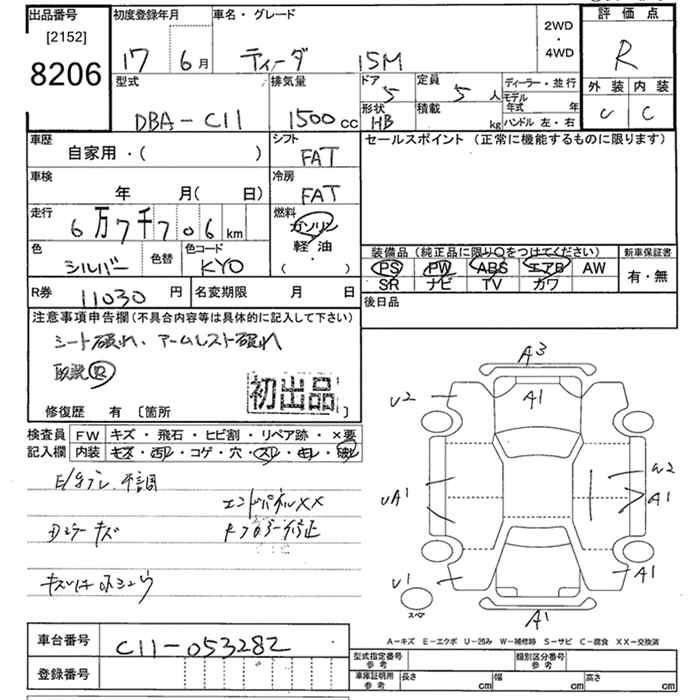 出品番号
[2152]
8206
初度登録年月
17 6月
車名・グレード
ティーダ 15M
2WD
・
4WD
評価点
R
外装 内装
C
型式
DBA-C11
排気量
1500cc
ドア
5
定員
5人
ディーラー・並行
形状
HB
積載
kg
モデル年式 年
ハンドル 左・右
車歴
自家用・( )
シフト
FAT
セールスポイント (正常に機能するものに限ります)
車検
年 月( 日)
冷房
FAT
走行
6万7千706km
燃料
ガソリン
軽・油
・
( )
色
シルバー
色替
色コード
KY0
装備品 (純正品に限り○をつけてください)
新車保証書
PS PW ABS エアB AW
SR ナビ TV カワ
有・無
R券 11030 円
名変期限 月 日
後日品
注意事項申告欄(不具合内容等は具体的に記入して下さい)
シート破れ、アームレスト破れ
取説
初出品
修復歴 有 [箇所 ]
検査員
記入欄
FW キズ・飛石・ヒビ割・リペア跡・×要
内装 キズ・汚レ・コゲ・穴・スレ・キレ・破レ
不調
エンドパネルXX
Dミラーキズ
修正
A3
U2
A1
W2
UA1
A1
U1
A1
スペア
A1
A-キズ E-エクボ U-凹み W-補修跡 S-サビ C-腐食 XX-交換済
車台番号 C11-053282
登録番号
型式指定番号
参考
類別区分番号
参考
車庫証明用
参考
長さ cm 幅 cm 高さ cm